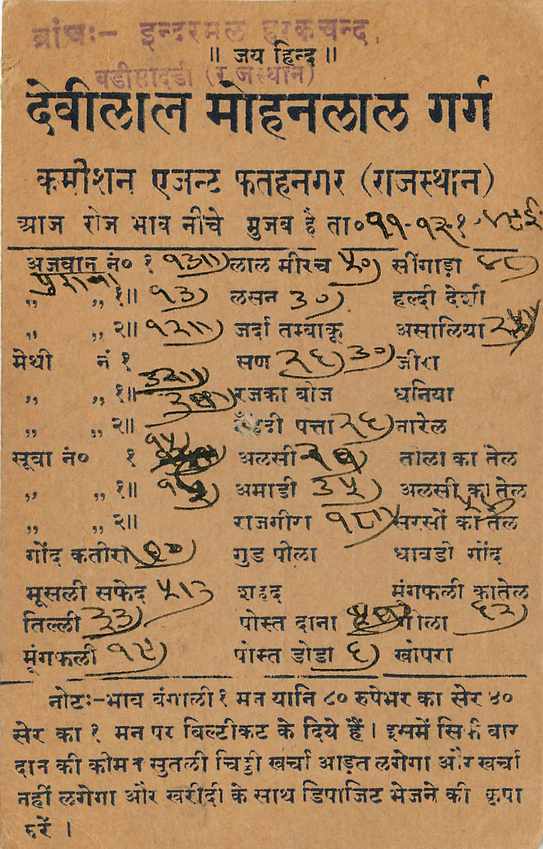 ब्रांचः— इन्दरमल हरकचन्द
॥ जय हिन्द ॥
बडीसादडी (राजस्थान)
देवीलाल मोहनलाल गर्ग
कमीशन एजन्ट फतहनगर (राजस्थान)
आज रोज भाव नीचे मुजब है ता०
अजवान नं० १ १३॥) लाल मीरच ५०) सींगाड़ा
" " १॥ १३) लसन ३०) हल्दी देशी
" " २॥ १२॥) जर्दा तम्बाकू असालिया
मेथी नं १ सण जीरा
" " १॥ रजका बीज धनिया
" " २॥ पत्ता २६) नारेल
सूवा नं० १ अलसी तोला का तेल
" " १॥ अमाडी ३५) अलसी का तेल
" " २॥ राजगीरा सरसों का तेल
गोंद कतीरा गुड पीला धावडो गोंद
मूसली सफेद शहद मंगफली का तेल
तिल्ली ३३) पोस्त दाना ६२)
मुंगफली १९) पोस्त डोडा ६) खोपरा
नोटः—भाव बंगाली १ मन यानि ८० रुपेभर का सेर ४०
सेर का १ मन पर बिल्टीकट के दिये हैं। इसमें सिर्फ वार
दान की कीमत सुतली चिट्ठी खर्चा आड़त लगेगा और खर्चा
नहीं लगेगा और खरीदी के साथ डिपाजिट भेजने की कृपा
करें ।